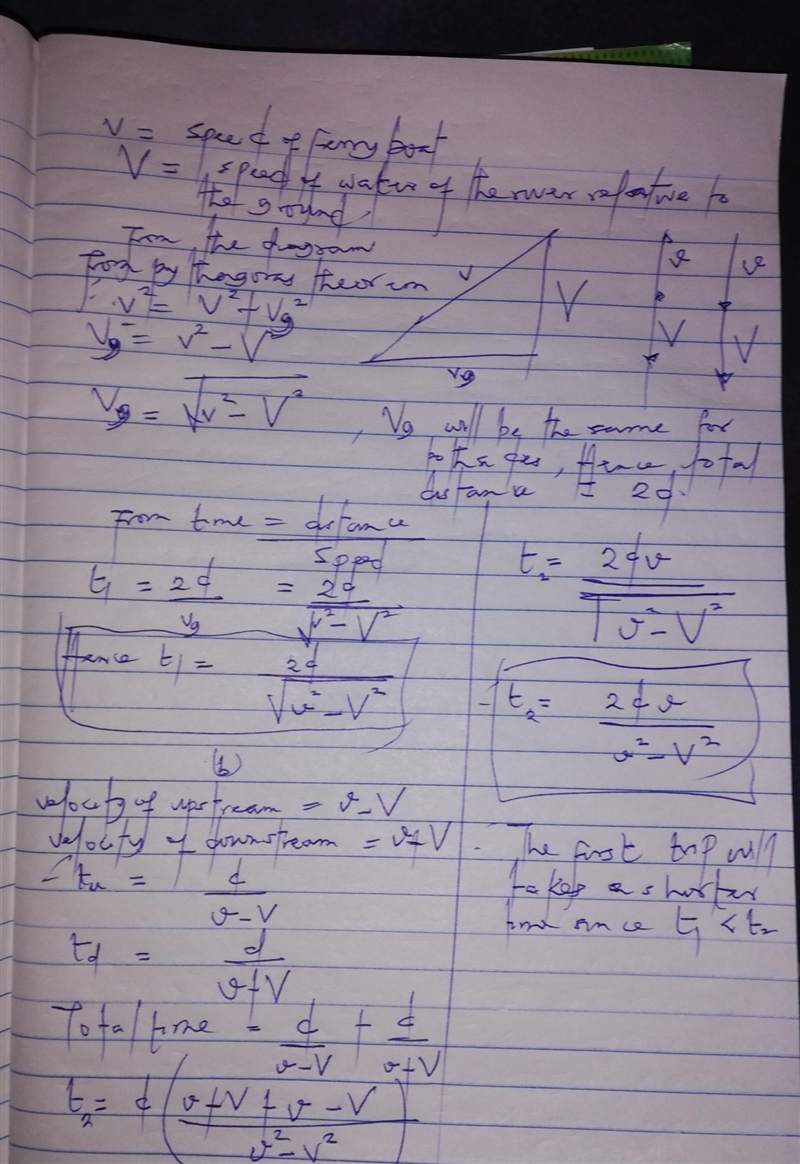 v = speed of ferry boat
V = speed of water of the river relative to
the ground.
From the diagram
From pythagoras theorem
∴ v² = V² + Vg²
Vg² = v² - V²
Vg = √v² - V²
v
V
Vg
v
V
v
V
, Vg will be the same for
both sides, Hence, total
distance = 2d.
From time = distance
speed
t₁ = 2d = 2d
Vg √v² - V²
Hence t₁ = 2d
√v² - V²
(b)
velocity of upstream = v - V
velocity of downstream = v + V
- tu = d
v - V
td = d
v + V
Total time = d + d
v - V v + V
t₂ = d ( v + V + v - V )
v² - V²
t₂ = 2dv
√v² - V²
- t₂ = 2dv
v² - V²
- The first trip will
takes a shorter
time since t₁ < t₂